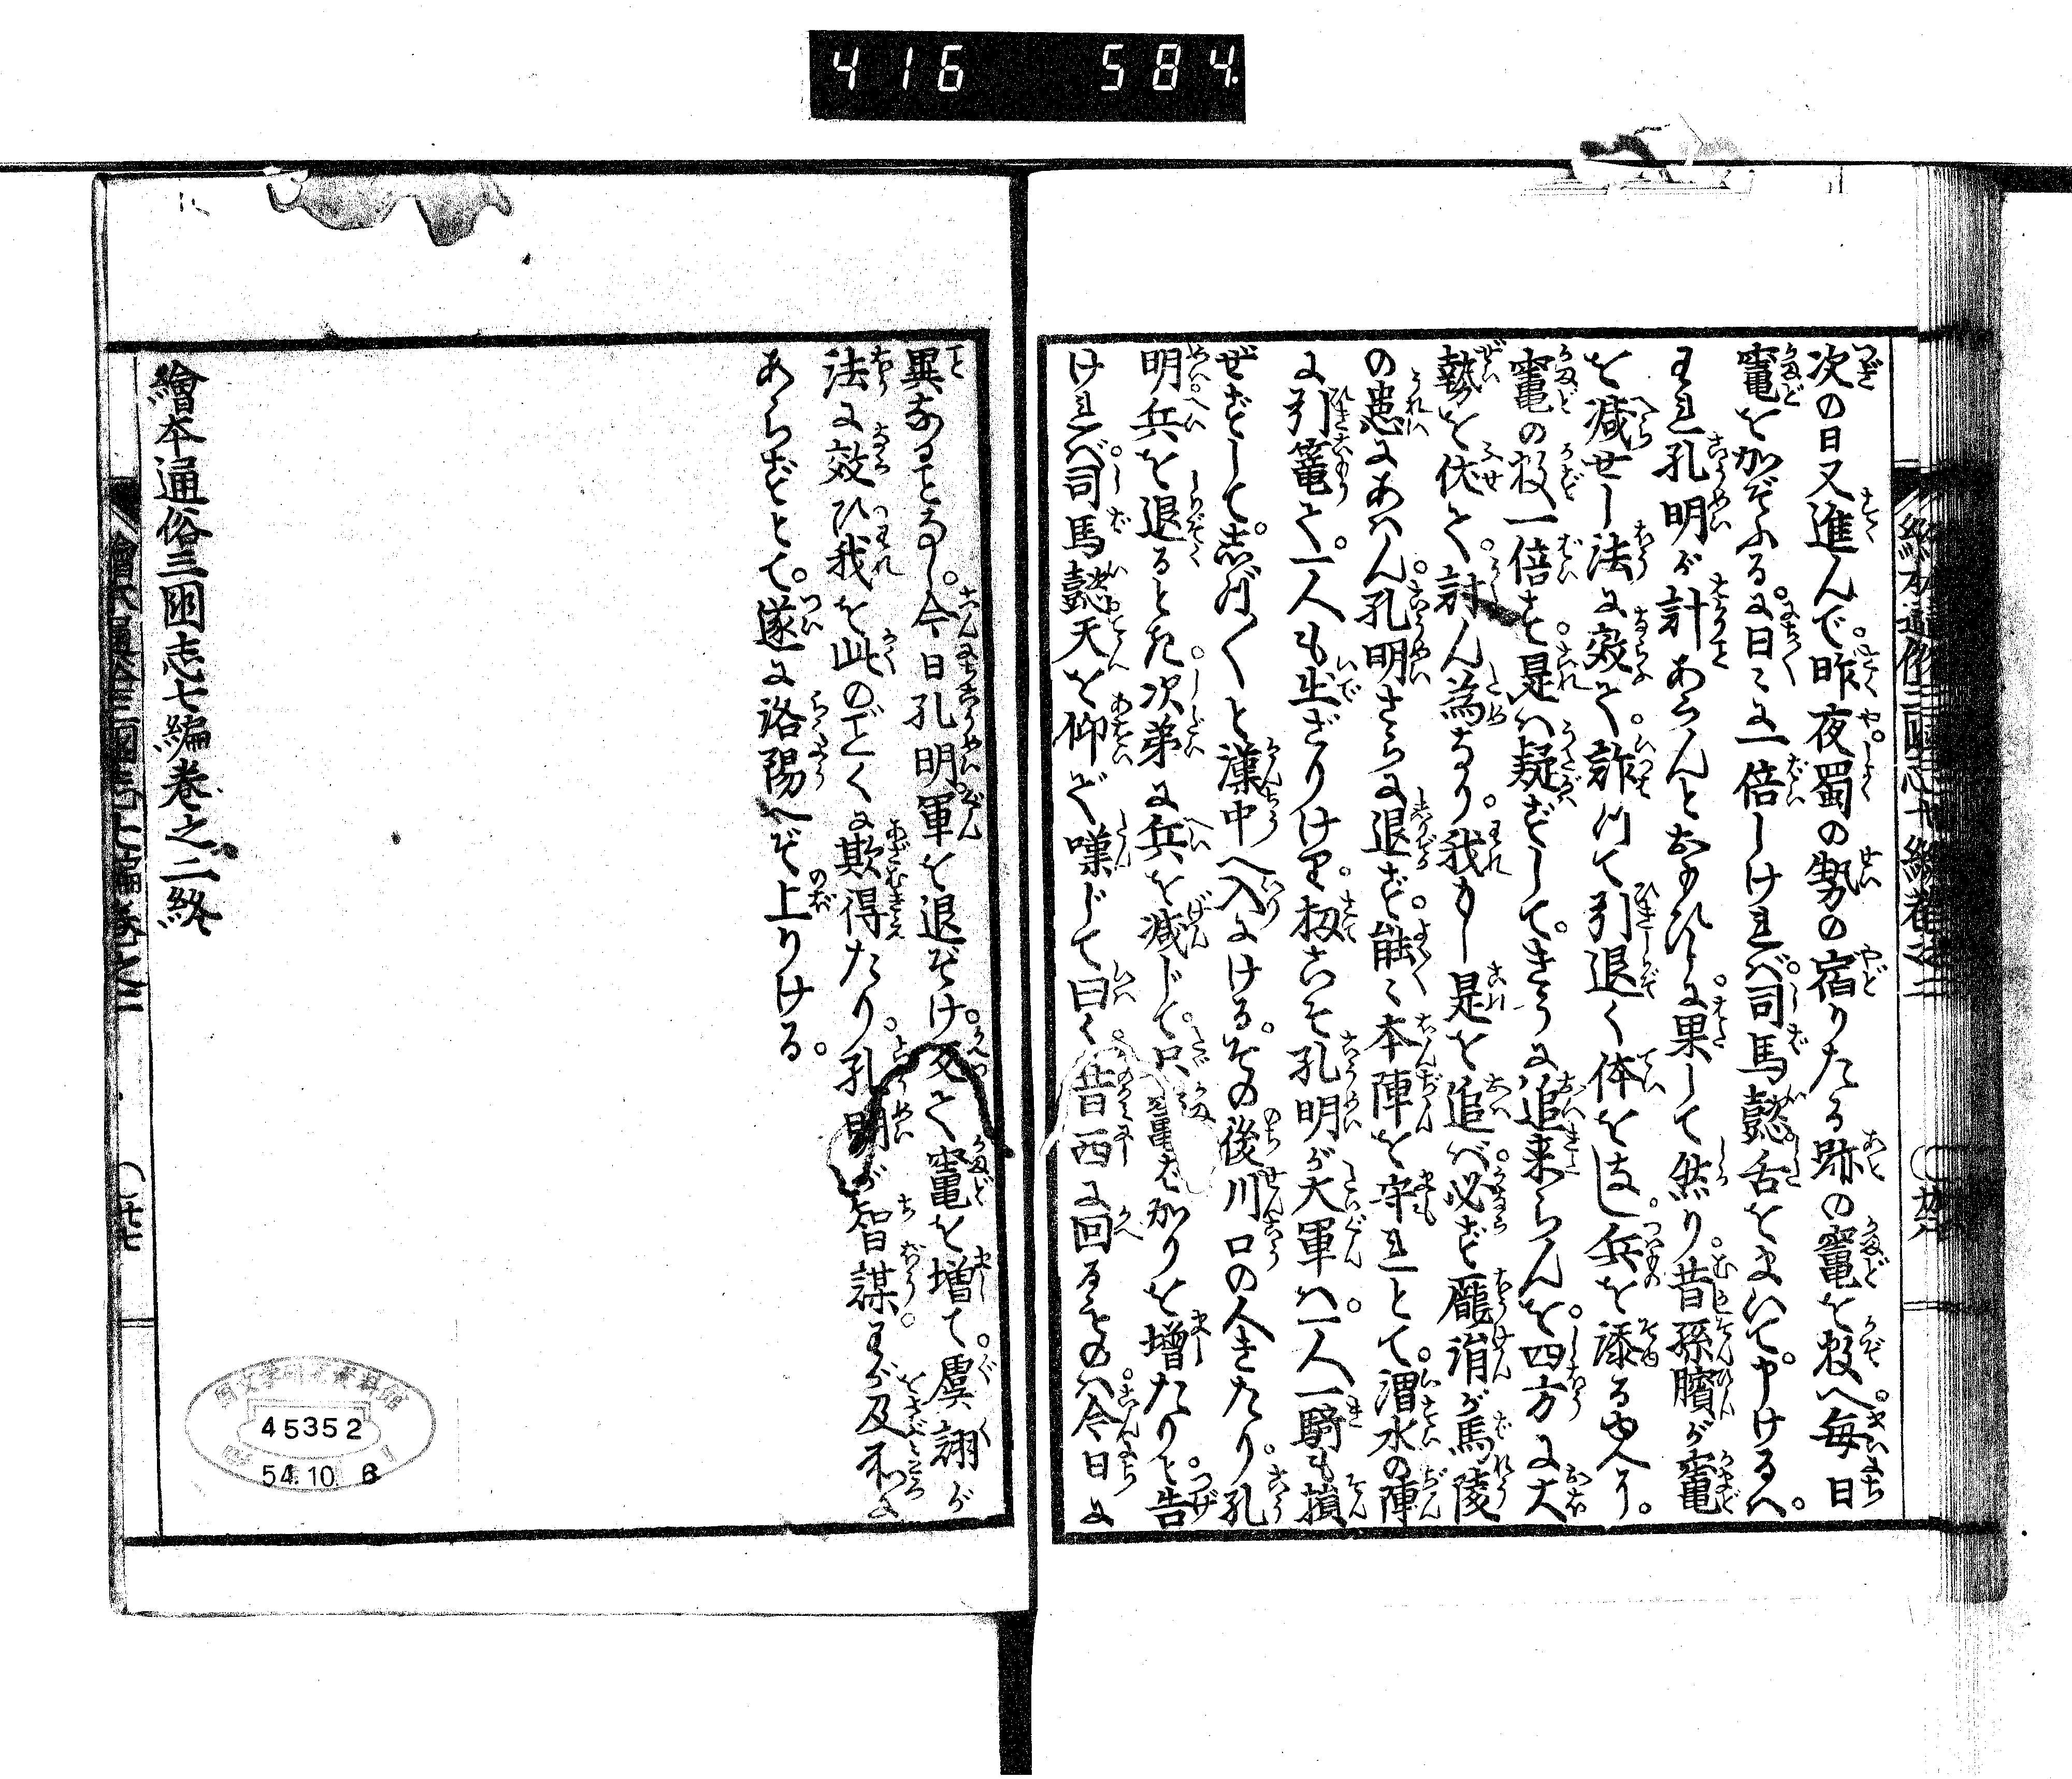 416 584
次の日又進んで。昨夜。蜀の勢の宿りたる跡の竈を数へ。毎日
竈を加ぞふる。に日〻に一倍しければ。司馬懿。舌をまいて。申けるハ。
われ孔明が計あらんとおもひしに。果して然り。昔孫臏が竈
を減せし法に效て。詐つて引退く体をなし。兵を添る内へり。
竈の数一倍す。是ハ疑ずして。きうに追来らんを。四方に大
勢を伏て。討ん為なり。我もし是を追バ。必ず龐涓が馬陵
の患にあハん。孔明さらに退ず。能〻本陣を守れとて。渭水の陣
に引篭て。一人も出ざりけり。扨こそ孔明が大軍ハ。一人一騎も損
ぜずして。志づ〱と漢中へ入にける。その後川口の人きたり。孔
明。兵を退るとき。次第に兵を減じて。只竈ばかりを増たりと。告
ければ。司馬懿。天を仰で嘆じて曰く。昔西に回るものハ。今日に
異なることなし。今日孔明。軍を退ぞけ。反て竈を増て。虞詡が
法に效ひ我を此のごとくに欺得たり。孔明が智謀。わが及ぶ所に
あらずとて。遂に洛陽へぞ上りける。
繪本通俗三國志七編巻之二終
45352
54.10.6